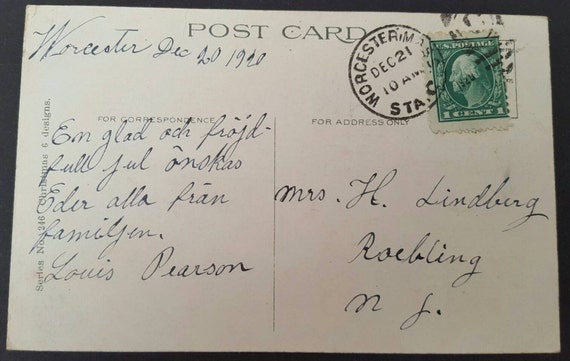 POST CARD
Worcester Dec 20 1920
WORCESTER, MASS.
DEC 21
10 AM
STA. C
1920
U.S. POSTAGE
1 CENT 1
FOR CORRESPONDENCE
FOR ADDRESS ONLY
En glad och fröjd-
full jul önskas
Eder alla från
familjen.
Louis Pearson
Mrs. H. Lindberg
Roebling
N J.
Series No. 246 Christmas 6 designs.